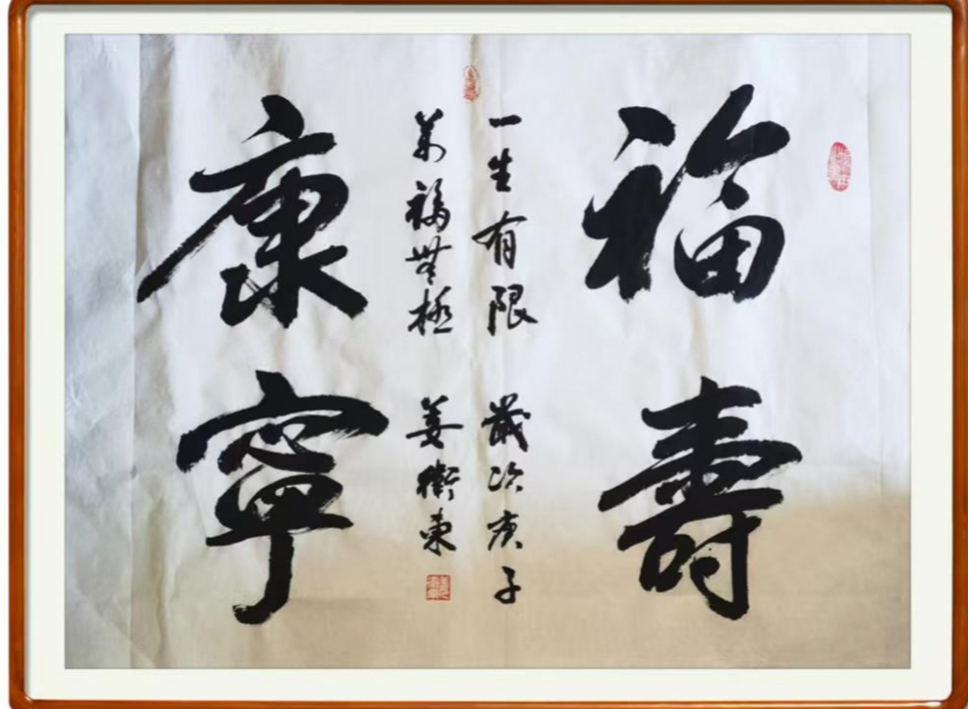 福壽
康寧
一生有限
萬福無極
歲次庚子
姜衛東